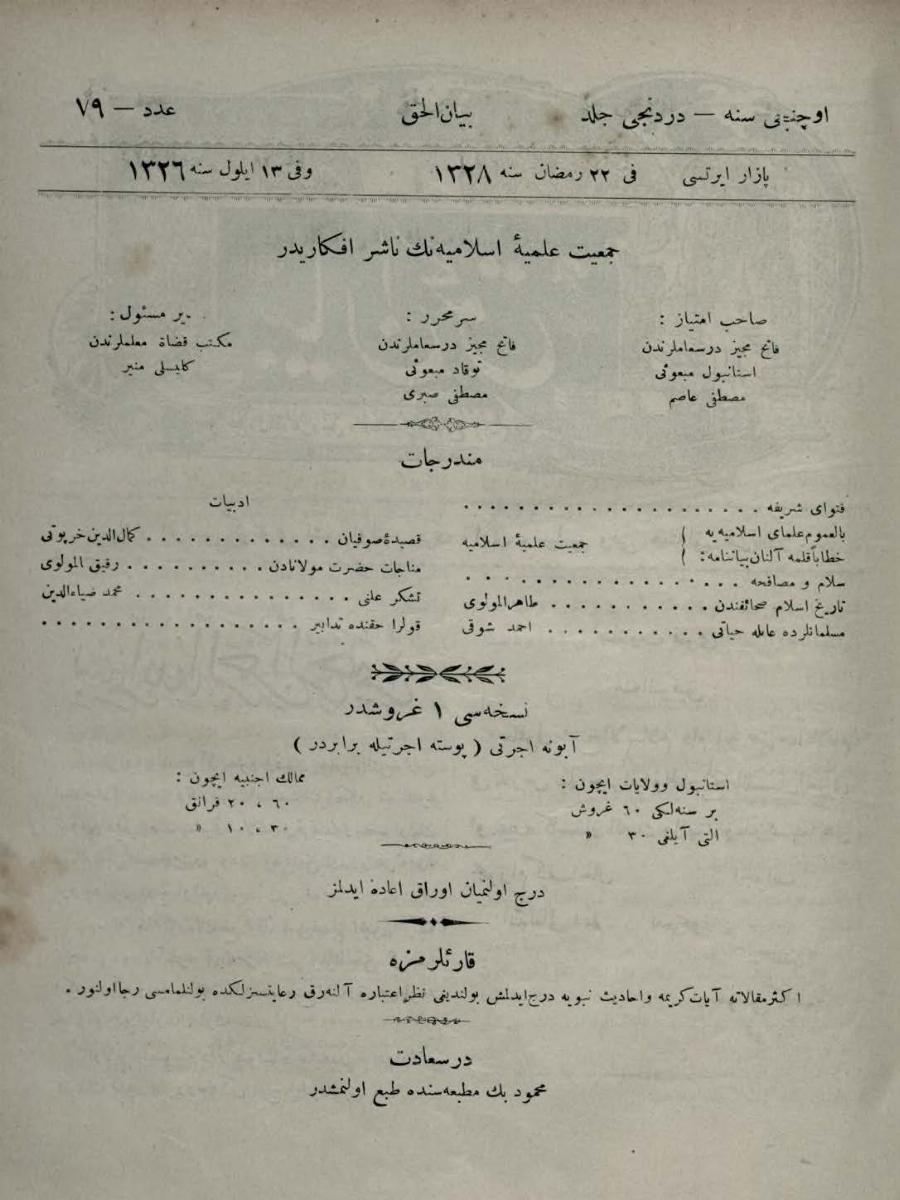 اوچنجی سنه — دردنجی جلد بیان‌الحق عدد — ٧٩
پازار ایرتسی فی ٢٢ رمضان سنه ١٣٢٨ وفی ١٣ ایلول سنه ١٣٢٦
جمعیت علمیهٔ اسلامیه‌نك ناشر افكاریدر
صاحب امتیاز :
فاتح مجیز درسعاملرندن
استانبول مبعوثی
مصطفی عاصم
سرمحرر :
فاتح مجیز درسعاملرندن
توقاد مبعوثی
مصطفی صبری
یر مسئول :
مكتب قضاة معلملرندن
كلیسلی منیر
مندرجات
فتوای شریفه . . . . . . . . . . . . . . . . . . . .
بالعموم علمای اسلامیه‌یه
خطاباً قلمه آلنان بیاننامه : } جمعیت علمیهٔ اسلامیه
سلام و مصافحه . . . . . . . . . . . . . . . . . . .
تاریخ اسلام صحائفندن . . . . . . . . . . . طاهرالمولوی
مسلمانلرده عائله حیاتی . . . . . . . . . . . احمد شوقی
ادبیات
قصیدهٔ صوفیان . . . . . . . . . . . . . كمال‌الدین خرپوتی
مناجات حضرت مولانادن . . . . . . . . . . رفیق المولوی
تشكر علنی . . . . . . . . . . . . . . . محمد ضیاءالدین
قولرا حقنده تدابیر . . . . . . . . . . . . . . . . . .
نسخه‌سی ١ غروشدر
آبونه اجرتی ( پوسته اجرتیله برابردر )
استانبول وولایات ایچون :
بر سنه‌لكی ٦٠ غروش
التی آیلغی ٣٠ »
ممالك اجنبیه ایچون :
٦٠ ، ٢٠ فرانق
٣٠ ، ١٠ »
درج اولنمیان اوراق اعاده ایدلمز
قارئلرمزه
اكثر مقالاته آیات كریمه واحادیث نبویه درج ایدلمش بولندیغی نظر اعتباره آلنه‌رق رعایتسزلكده بولنلمامسی رجا اولنور .
درسعادت
محمود بك مطبعه‌سنده طبع اولنمشدر